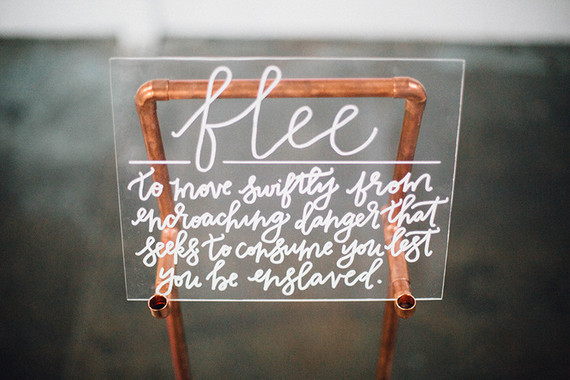 flee
to move swiftly from
encroaching danger that
seeks to consume you lest
you be enslaved.